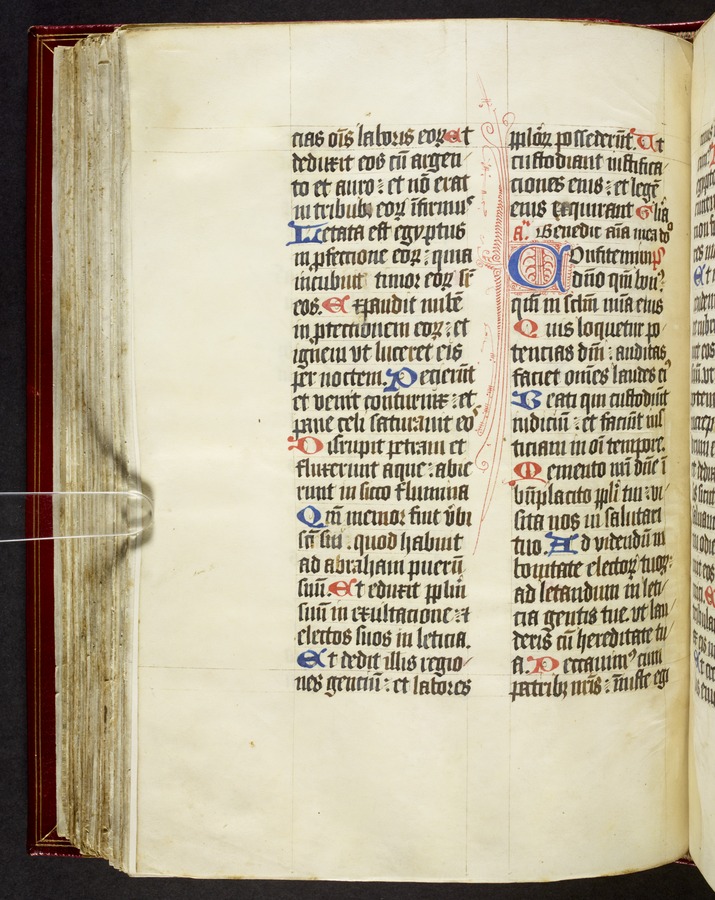 cias oīs laboris eoꝝ Et
deduxit eos cū argen
to et auro : et nō erat
in tribubꝫ eoꝝ īfirmus
Letata est egyptus
in ꝓfectione eoꝝ : quia
incubuit timor eoꝝ sr̄
eos. Expandit nubē
in ꝓtectionem eoꝝ : et
ignem vt luceret eis
per noctem. Petierūt
et venit coturnix : et
pane celi saturauit eos
Disrupit petram et
fluxerunt aque : abie
runt in sicco flumina
Qm̄ memor fuit v̄bi
sc̄i sui . quod habuit
ad abraham puerū
suū. Et eduxit ppl̄m
suū in exultatione : et
electos suos in leticia.
Et dedit illis regio
nes gentiū : et labores
ppl̄oꝝ possederūt. Vt
custodiant iustifica
tiones eius : et legē
eius exquirant Gl̄ia
a. Benedic aīa mea do
Confitemini ps
dn̄o qm̄ bonꝰ :
qm̄ in sclm̄ mīa eius
Quis loquetur po
tencias dn̄i : auditas
faciet omēs laudes eiꝰ
Beati qui custodiūt
iudiciū : et faciūt ius
ticiam in oī tempore.
Memento nr̄i dn̄e ī
bn̄placito ppl̄i tui : vi
sita nos in salutari
tuo. Ad videndū in
bonitate electoꝝ tuoꝝ :
ad letandum in leti
cia gentis tue. vt lau
deris cū hereditate tu
a. Peccauimꝰ cum
patribꝫ nr̄is : īniuste egi